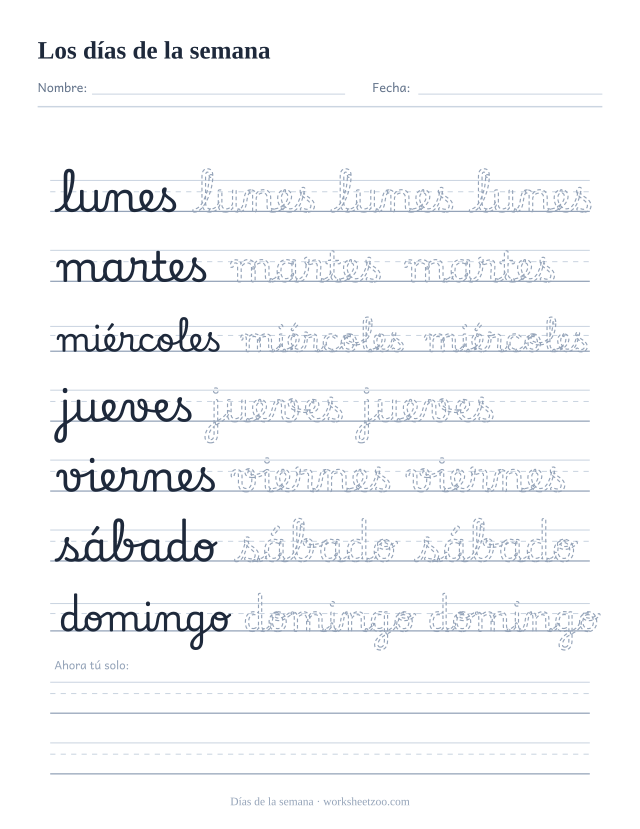 Los días de la semana
Nombre: Fecha:
lunes lunes lunes lunes
martes martes martes
miércoles miércoles miércoles
jueves jueves jueves
viernes viernes viernes
sábado sábado sábado
domingo domingo domingo
Ahora tú solo:
Días de la semana · worksheetzoo.com